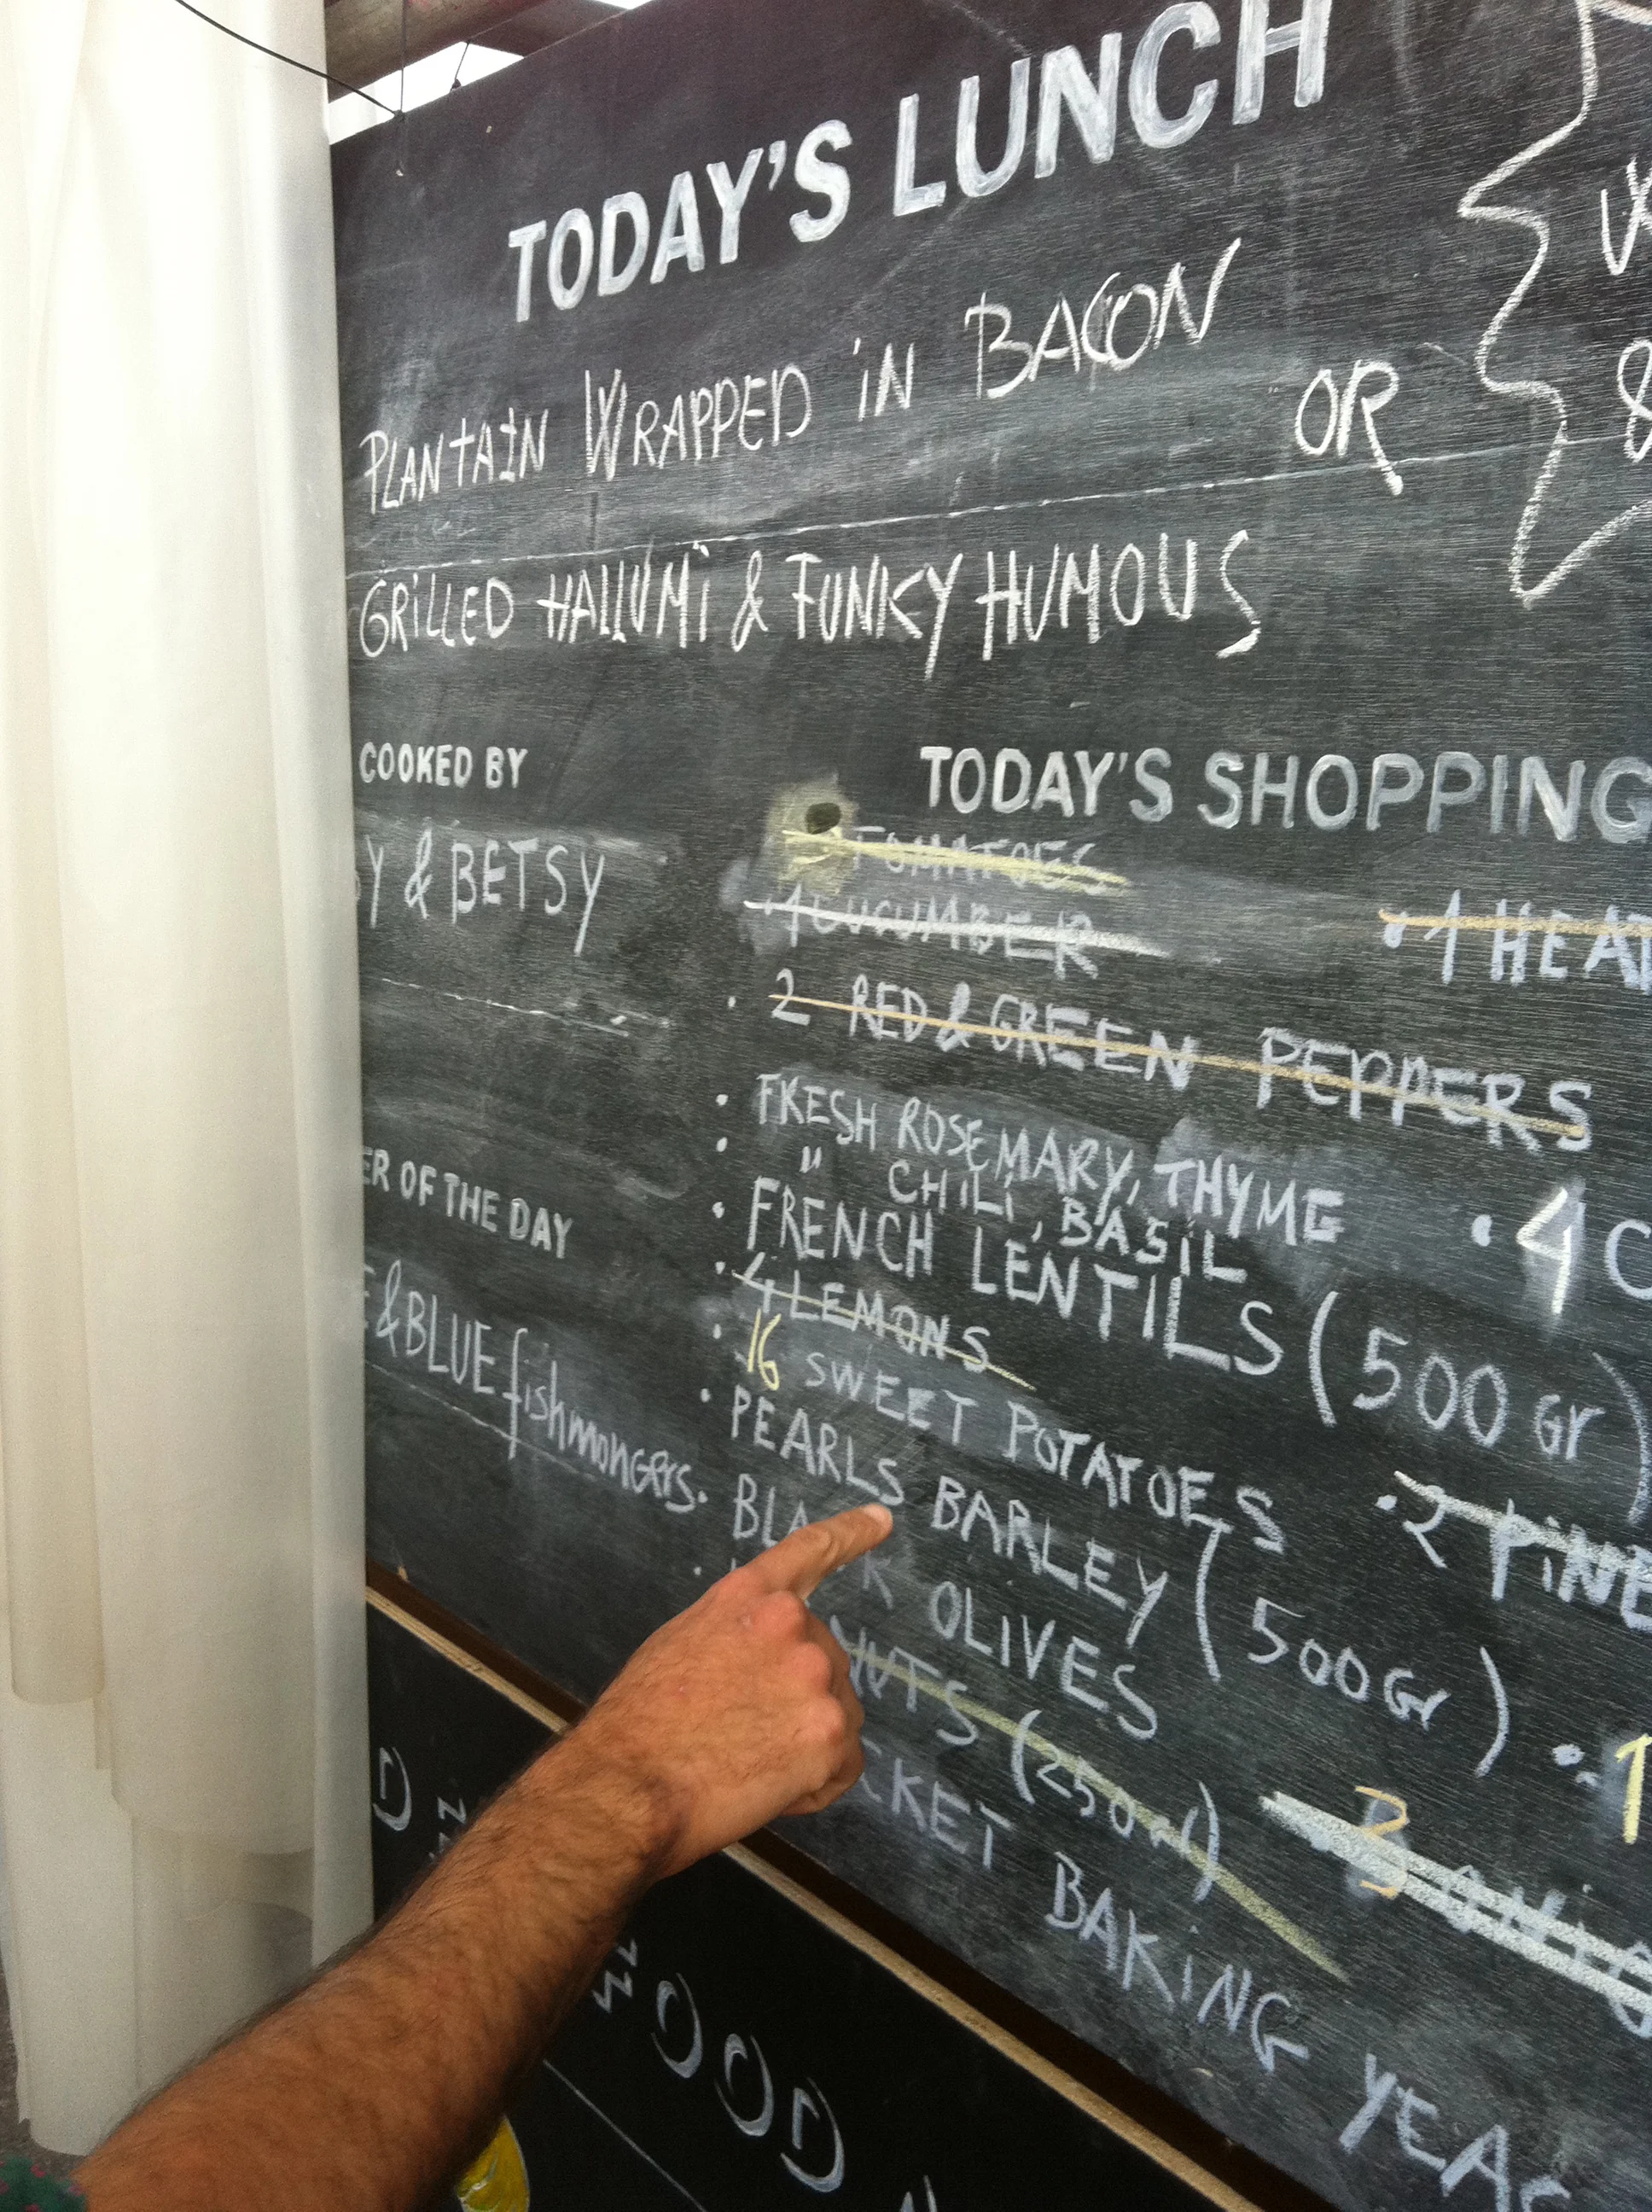 TODAY'S LUNCH
PLANTAIN WRAPPED iN BACON
OR
GRiLLED HALLUMi & FUNKY HUMOUS
COOKED BY
Y & BETSY
ER OF THE DAY
& BLUE fishmongers.
TODAY'S SHOPPING
TOMATOES
• 1 CUCUMBER
• 2 RED & GREEN PEPPERS
• FRESH ROSEMARY, THYME
• " CHiLi, BASiL
• FRENCH LENTILS (500 Gr)
• 4 LEMONS
• 16 SWEET POTATOES
• PEARLS BARLEY (500 Gr)
• BLACK OLiVES
NUTS (250 gr)
CKET BAKiNG YEAS
• 1 HEA
• 4 C
• 2 PiNE
• 1
3
D
FOOD